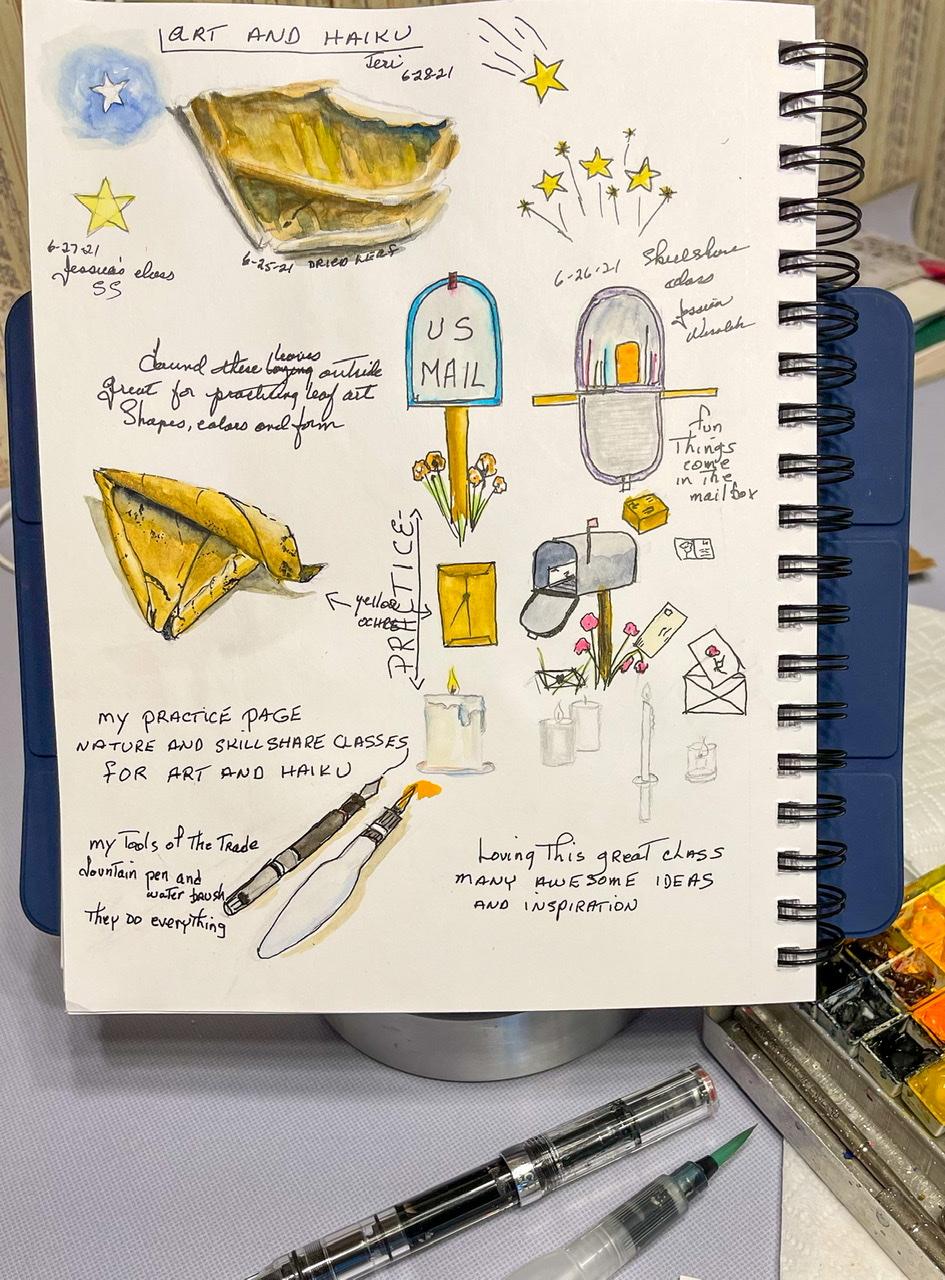 ART AND HAIKU
Jeri
6-28-21
6-27-21
Jessica's class
SS
6-25-21 DRIED LEAF
6-26-21 Skillshare
class
Jessica
US
MAIL
found these leaves outside
great for practicing leaf art
Shapes, colors and form
fun
Things
come
in The
mailbox
PRACTICE
yellow
OCHRE
my PRACTICE PAGE
NATURE AND SKILLSHARE CLASSES
FOR ART AND HAIKU
my Tools of the Trade
fountain pen and
water brush
They DO everything
Loving This great class
MANY AWESOME IDEAS
AND INSPIRATION